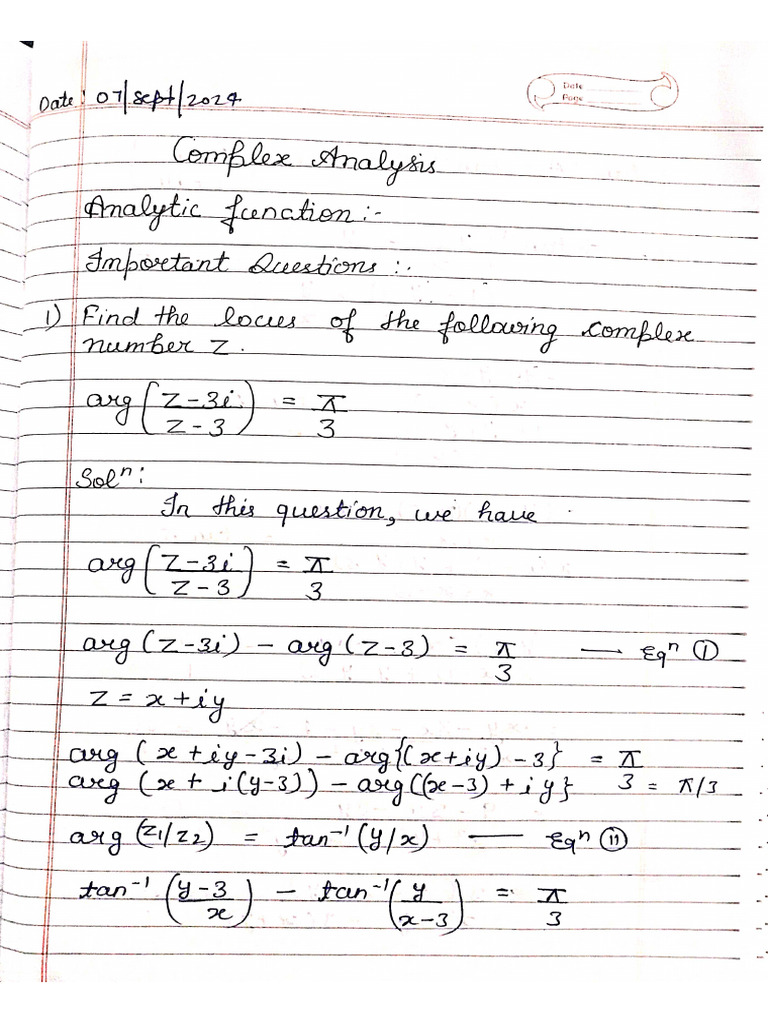 Date: 07/Sept/2024
Date
Page
Complex Analysis
Analytic function:-
Important Questions:-
1) Find the locus of the following complex
number z.
arg (z-3i / z-3) = π/3
Solⁿ:
In this question, we have
arg (z-3i / z-3) = π/3
arg (z-3i) - arg (z-3) = π/3 — Eqⁿ (i)
z = x+iy
arg (x+iy-3i) - arg{(x+iy)-3} = π/3
arg (x+i(y-3)) - arg((x-3)+iy} = π/3
arg (z1/z2) = tan⁻¹(y/x) — Eqⁿ (ii)
tan⁻¹ (y-3 / x) - tan⁻¹ (y / x-3) = π/3